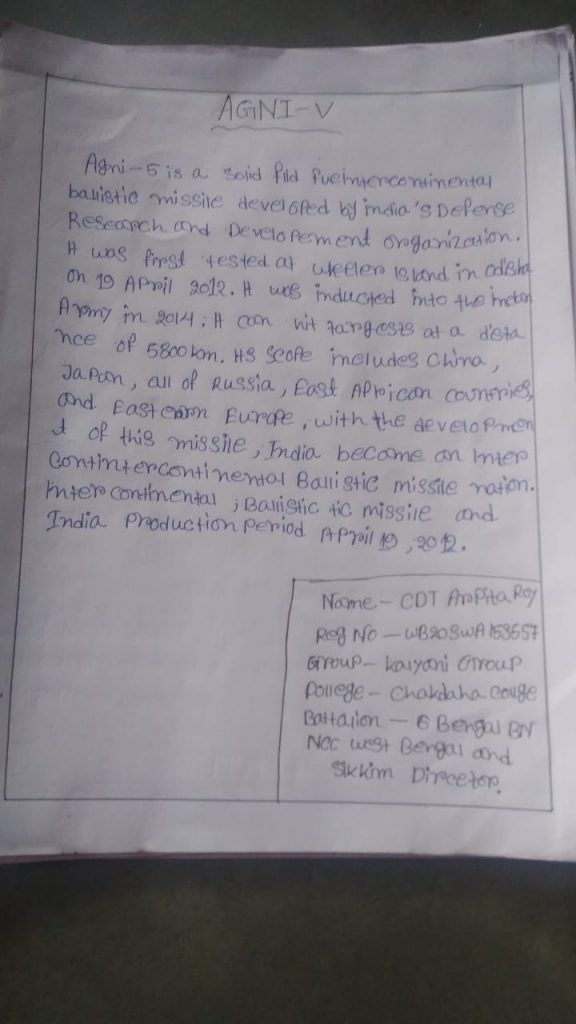 AGNI-V
Agni-5 is a solid fild fueintercontinental
ballistic missile developed by india's Defense
Research and Developement organization.
It was first tested at wheeler Island in odisha
on 19 April 2012. It was inducted into the indian
Army in 2014. It can hit targests at a dista
nce of 5800 km. Its scope includes China,
Japan, all of Russia, East African countries,
and Eastern Europe, with the developmen
t of this missile, India become an Inter
Contintercontinental Ballistic missile nation.
Intercontinental, Ballistic tic missile and
India Production Period April 19, 2012.
Name - CDT Arpita Roy
Reg No - WB20SWA153557
Group - Kalyani Group
College - Chakdaha Collge
Battalion - 6 Bengal BN
NCC West Bengal and
Sikkim Dircetor.